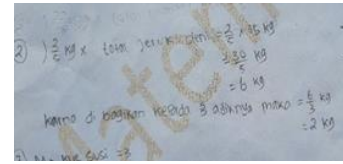 ② ) 2/5 kg x total jeruk deni = 2/5 x 15 kg
= 30/5 kg
= 6 kg
karna di bagikan kepada 3 adiknya maka = 6/3 kg
= 2 kg
kue susi = 3